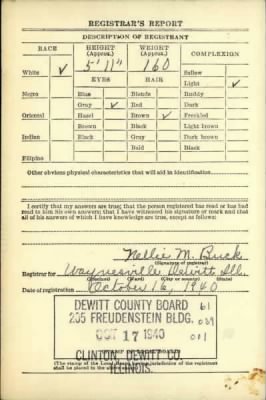 REGISTRAR'S REPORT
DESCRIPTION OF REGISTRANT
RACE HEIGHT (Approx.) WEIGHT (Approx.) COMPLEXION
5' 11" 160 Sallow
White ✓ EYES HAIR Light ✓
Negro Blue Blonde Ruddy
Gray ✓ Red Dark
Oriental Hazel Brown ✓ Freckled
Brown Black Light brown
Indian Black Gray Dark brown
Bald Black
Filipino
Other obvious physical characteristics that will aid in identification
I certify that my answers are true; that the person registered has read or has had
read to him his own answers; that I have witnessed his signature or mark and that
all of his answers of which I have knowledge are true, except as follows:
Nellie M. Buck
(Signature of registrar)
Registrar for Waynesville Dewitt Ill.
(Precinct) (Ward) (City or county) (State)
Date of registration October 16, 1940
DEWITT COUNTY BOARD 61
205 FREUDENSTEIN BLDG. 039
OCT 17 1940 001
CLINTON, DEWITT CO.
ILLINOIS.
(The stamp of the Local Board having jurisdiction of the registrant
shall be placed in the above space)